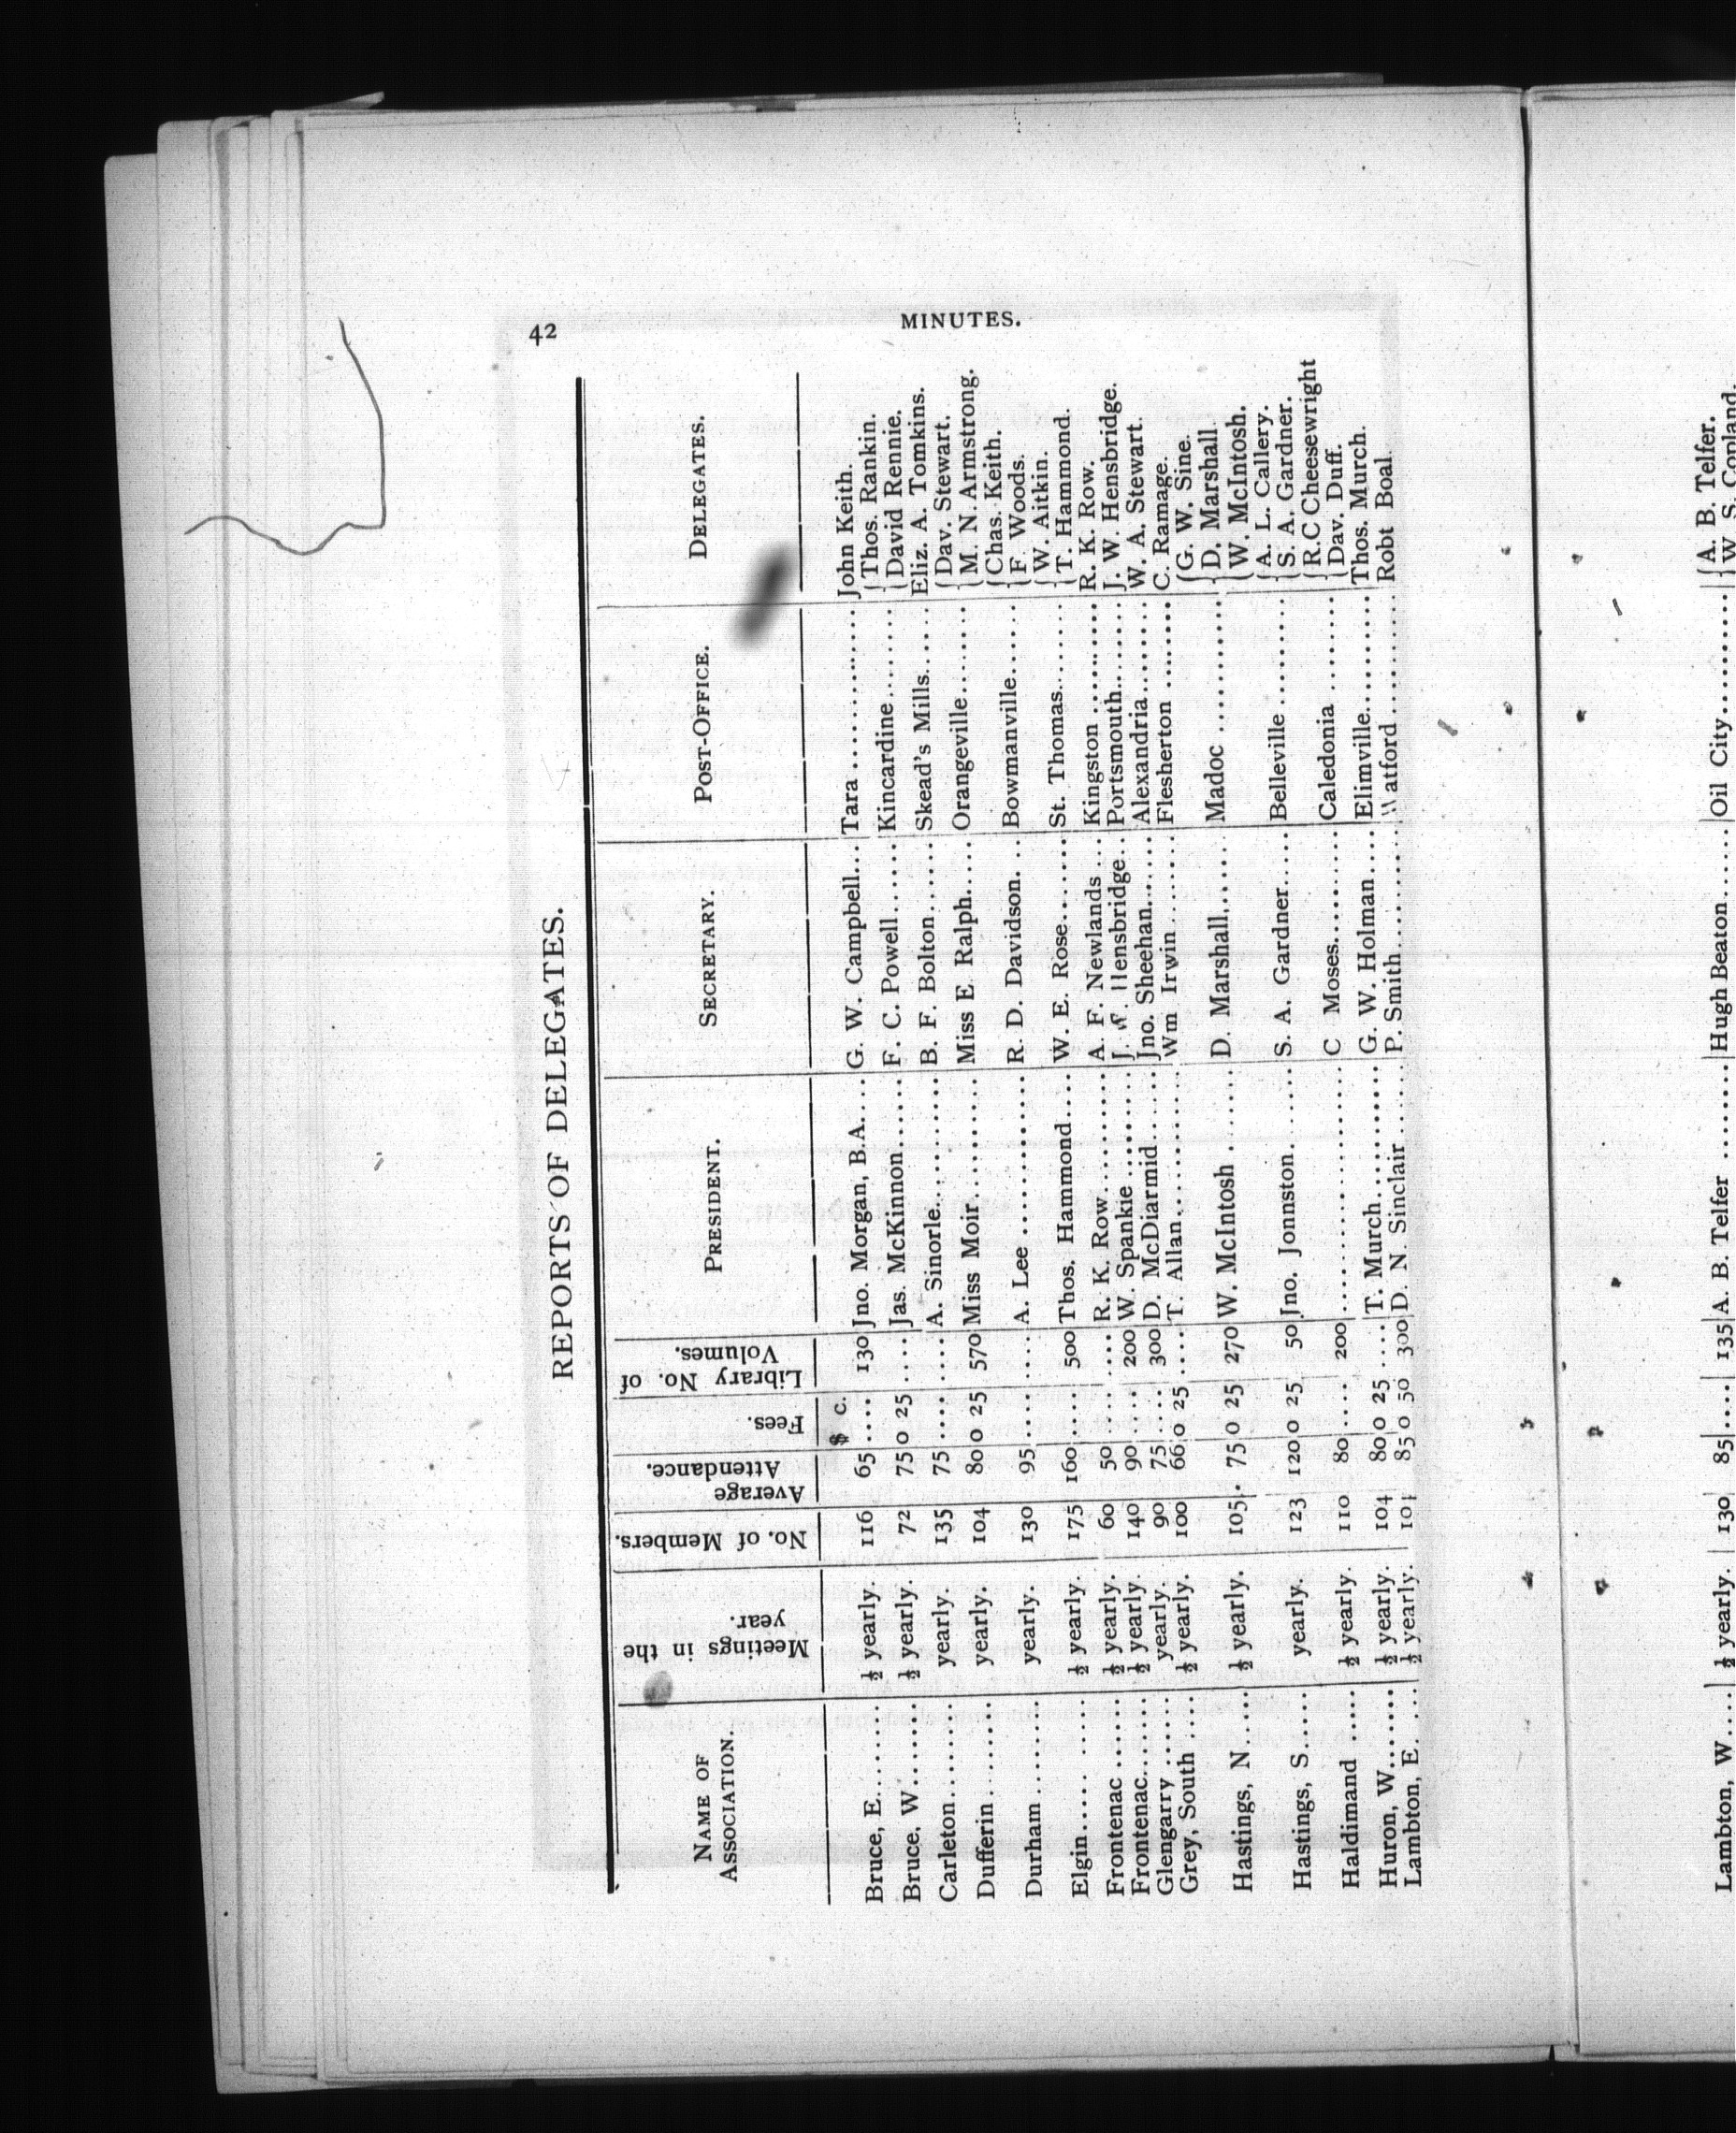 42
MINUTES.
REPORTS OF DELEGATES.
NAME OF ASSOCIATION. Meetings in the year. No. of Members. Average Attendance. Fees. Library No. of Volumes. PRESIDENT. SECRETARY. POST-OFFICE. DELEGATES.
$ c.
Bruce, E........ ½ yearly. 116 65 .... 130 Jno. Morgan, B.A.... G. W. Campbell... Tara ............. John Keith.
Bruce, W....... ½ yearly. 72 75 0 25 .... Jas. McKinnon....... F. C. Powell...... Kincardine........ { Thos. Rankin.
{ David Rennie.
Carleton........ yearly. 135 75 .... .... A. Sinorle........... B. F. Bolton....... Skead's Mills...... Eliz. A. Tomkins.
Dufferin........ yearly. 104 80 0 25 570 Miss Moir.......... Miss E. Ralph..... Orangeville........ { Dav. Stewart.
{ M. N. Armstrong.
Durham......... yearly. 130 95 .... .... A. Lee ............. R. D. Davidson. .. Bowmanville...... { Chas. Keith.
{ F Woods.
Elgin..... ..... ½ yearly. 175 160 .... 500 Thos. Hammond.... W. E. Rose........ St. Thomas....... { W. Aitkin.
{ T. Hammond.
Frontenac ...... ½ yearly. 60 50 .. .... R. K. Row.......... A. F. Newlands ... Kingston ......... R. K. Row.
Frontenac....... ½ yearly. 140 90 .... 200 W. Spankie ......... J. W. Hensbridge.. Portsmouth........ J. W. Hensbridge.
Glengarry ...... yearly. 90 75 ... 300 D. McDiarmid...... Jno. Sheehan....... Alexandria........ W. A. Stewart.
Grey, South .... ½ yearly. 100 66 0 25 .... T. Allan............ Wm Irwin........ Flesherton ....... C. Ramage.
Hastings, N..... ½ yearly. 105 75 0 25 270 W. McIntosh ....... D. Marshall....... Madoc ........... { G. W. Sine.
{ D. Marshall
{ W. McIntosh.
Hastings, S..... yearly. 123 120 0 25 50 Jno. Jonnston....... S. A. Gardner..... Belleville ......... { A. L. Callery.
{ S. A. Gardner.
Haldimand ..... ½ yearly. 110 80 .... 200 .................... C Moses.......... Caledonia ........ { R.C Cheesewright
{ Dav. Duff.
Huron, W....... ½ yearly. 104 80 0 25 .... T. Murch........... G. W. Holman.... Elimville.......... Thos. Murch.
Lambton, E.... ½ yearly. 101 85 0 50 300 D. N. Sinclair...... P. Smith.......... Watford ......... Robt Boal
Lambton, W.... ½ yearly. 130 85 .... 135 A. B. Telfer ....... Hugh Beaton..... Oil City......... { A. B. Telfer.
{ W. S. Copland.